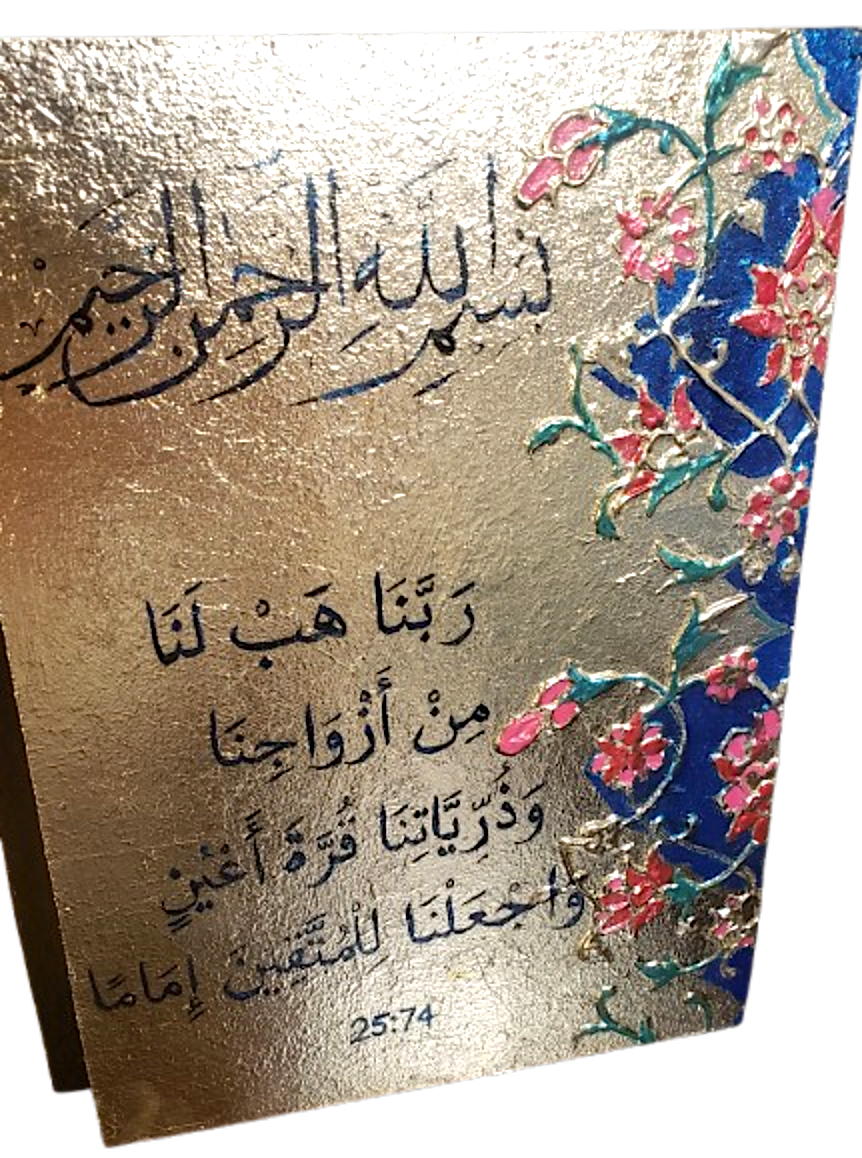 بسم الله الرحمن الرحيم
رَبَّنَا هَبْ لَنَا
مِنْ أَزْوَاجِنَا
وَذُرِّيَّاتِنَا قُرَّةَ أَعْيُنٍ
وَاجْعَلْنَا لِلْمُتَّقِينَ إِمَامًا
25:74